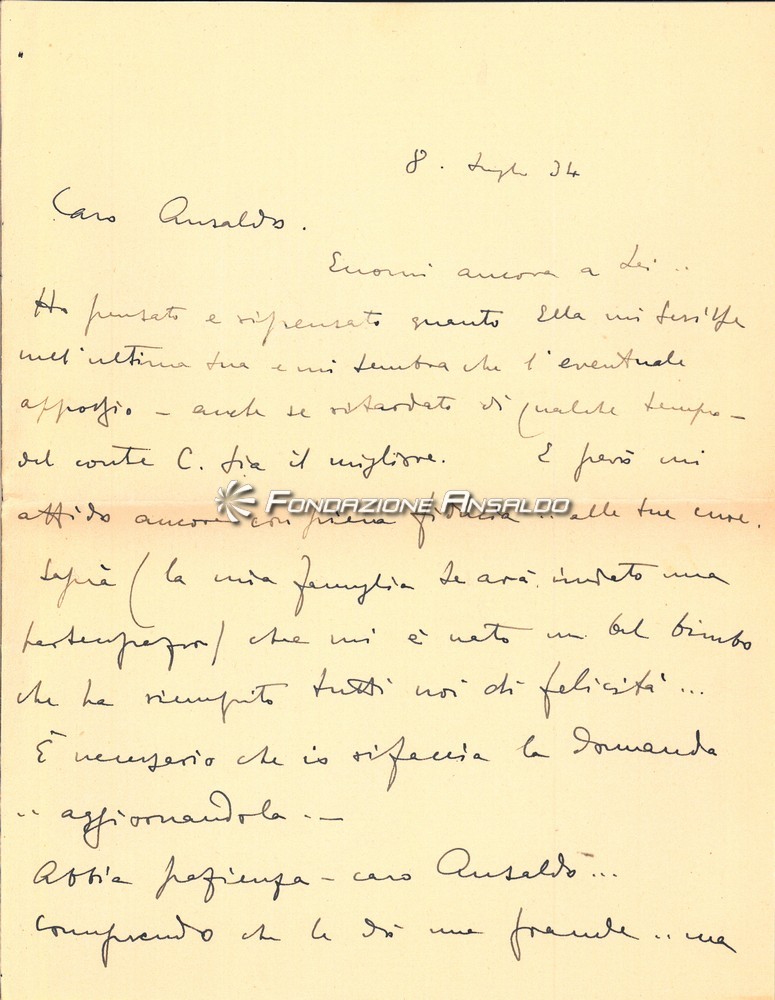 8. Luglio 34
Caro Ansaldo.
Eccomi ancora a Lei ..
Ho pensato e ripensato quanto Ella mi scrisse
nell'ultima sua e mi sembra che l'eventuale
appoggio - anche se ritardato di qualche tempo -
del conte C. sia il migliore. E però mi
affido ancora con piena fiducia .. alle sue cure.
FONDAZIONE ANSALDO
Saprà (la mia famiglia Le avrà inviato una
partecipazione) che mi è nato un bel bimbo
che ha riempito tutti noi di felicità ...
È necessario che io rifaccia la domanda
.. aggiornandola . -
Abbia pazienza - caro Ansaldo ...
Comprendo che le dò una grande .. ma